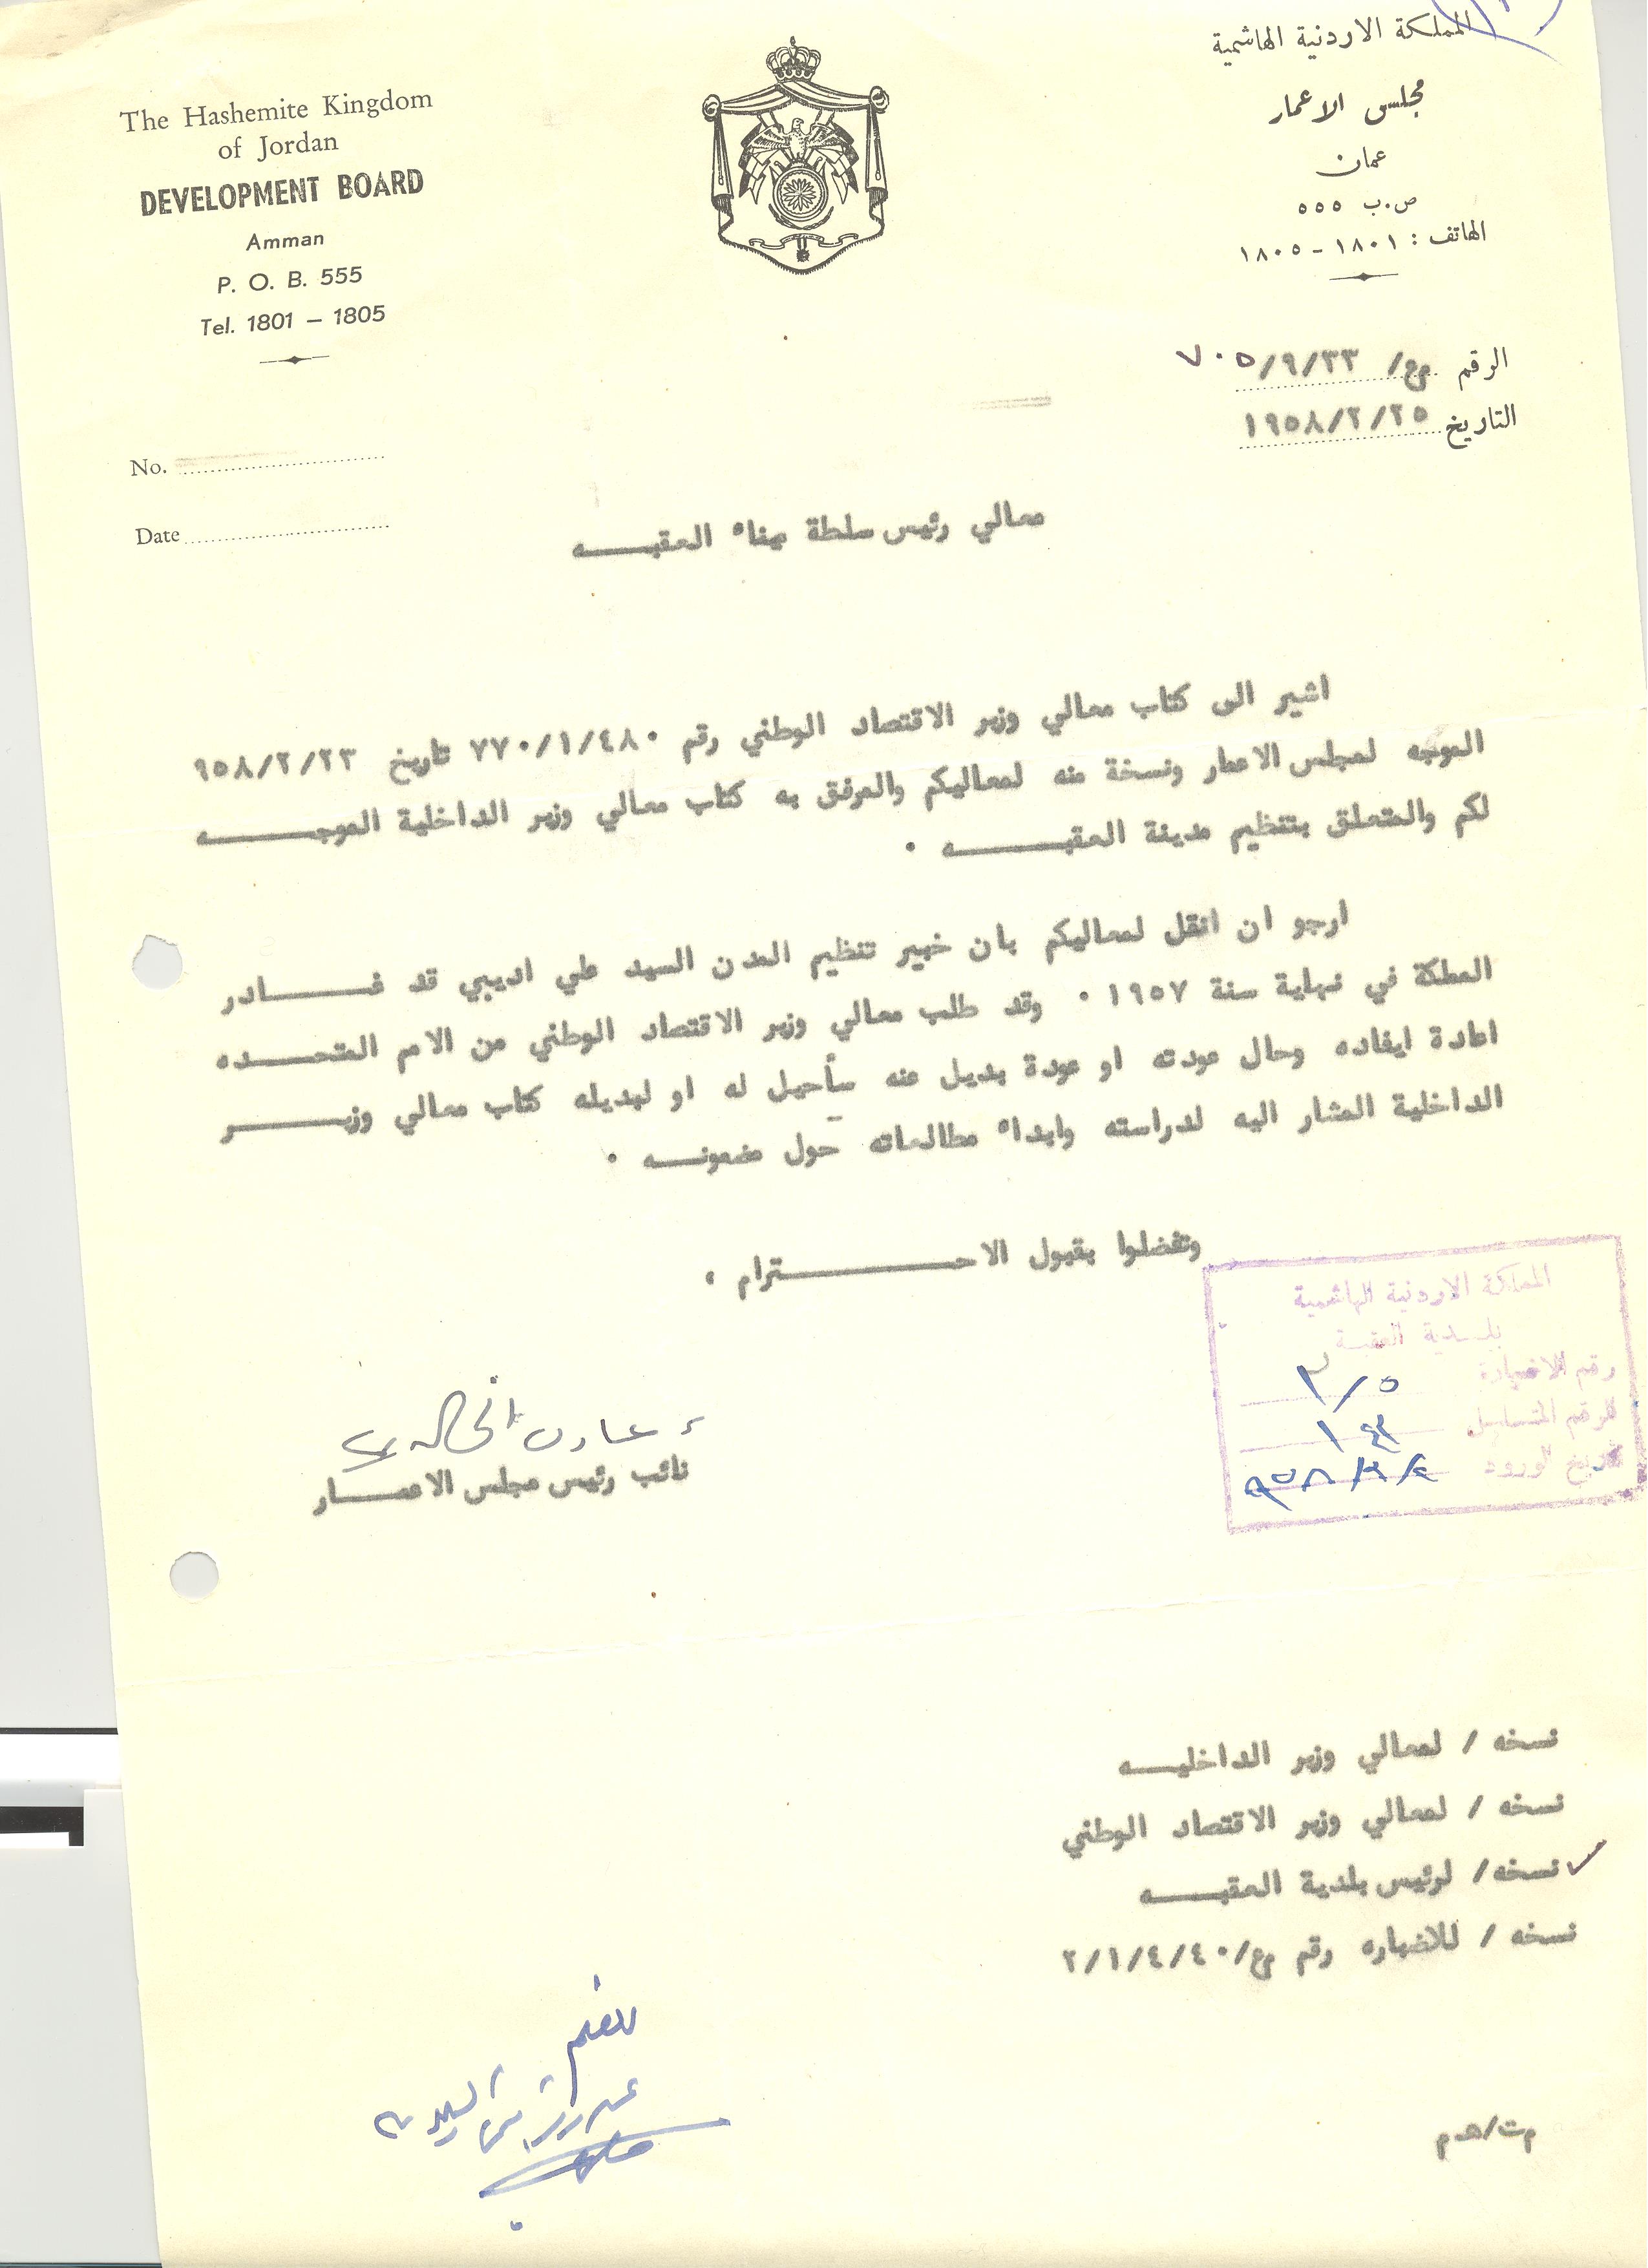 The Hashemite Kingdom
of Jordan
DEVELOPMENT BOARD
Amman
P. O. B. 555
Tel. 1801 – 1805
No.
Date
المملكة الاردنية الهاشمية
مجلس الاعمار
عمان
ص.ب ٥٥٥
الهاتف : ١٨٠١ - ١٨٠٥
الرقم مع/ ٩/٣٣/ ٧٠٥
التاريخ ١٩٥٨/٢/٢٥
معالي رئيس سلطة ميناء العقبـــه
اشير الى كتاب معالي وزير الاقتصاد الوطني رقم ٧٧٠/١/٤٨٠ تاريخ ٩٥٨/٢/٢٣
الموجه لمجلس الاعمار ونسخة منه لمعاليكم والمرفق به كتاب معالي وزير الداخلية الموجـــه
لكم والمتعلق بتنظيم مدينة العقبـــه .
ارجو ان انقل لمعاليكم بان خبير تنظيم المدن السيد علي اديبي قد غـــادر
المملكة في نهاية سنة ١٩٥٧ . وقد طلب معالي وزير الاقتصاد الوطني من الامم المتحـــده
اعادة ايفاده وحال عودته او عودة بديل عنه سأحيل له او لبديله كتاب معالي وزيـــر
الداخلية المشار اليه لدراسته وابداء مطالعاته حول مضمونـــه .
وتفضلوا بقبول الاحـــترام ،
نائب رئيس مجلس الاعمـــار
المملكة الاردنية الهاشمية
بلـدية العقبـة
رقم الاضبارة
الرقم المتسلسل
تاريخ الورود
نسخه / لمعالي وزير الداخليـــه
نسخه / لمعالي وزير الاقتصاد الوطني
نسخه/ لرئيس بلدية العقبـــه
نسخه / للاضباره رقم مع/٢/١/٤/٤٠
للحفظ
م ت/هـ م